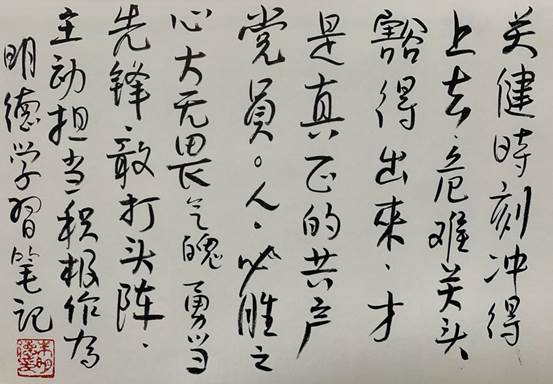 关健時刻冲得
上去、危难关头
豁得出來、才
是真正的共产
党員。人、必胜之
心大无畏气魄勇当
先锋、敢打头阵、
主动担当积极作为
明德学習笔记